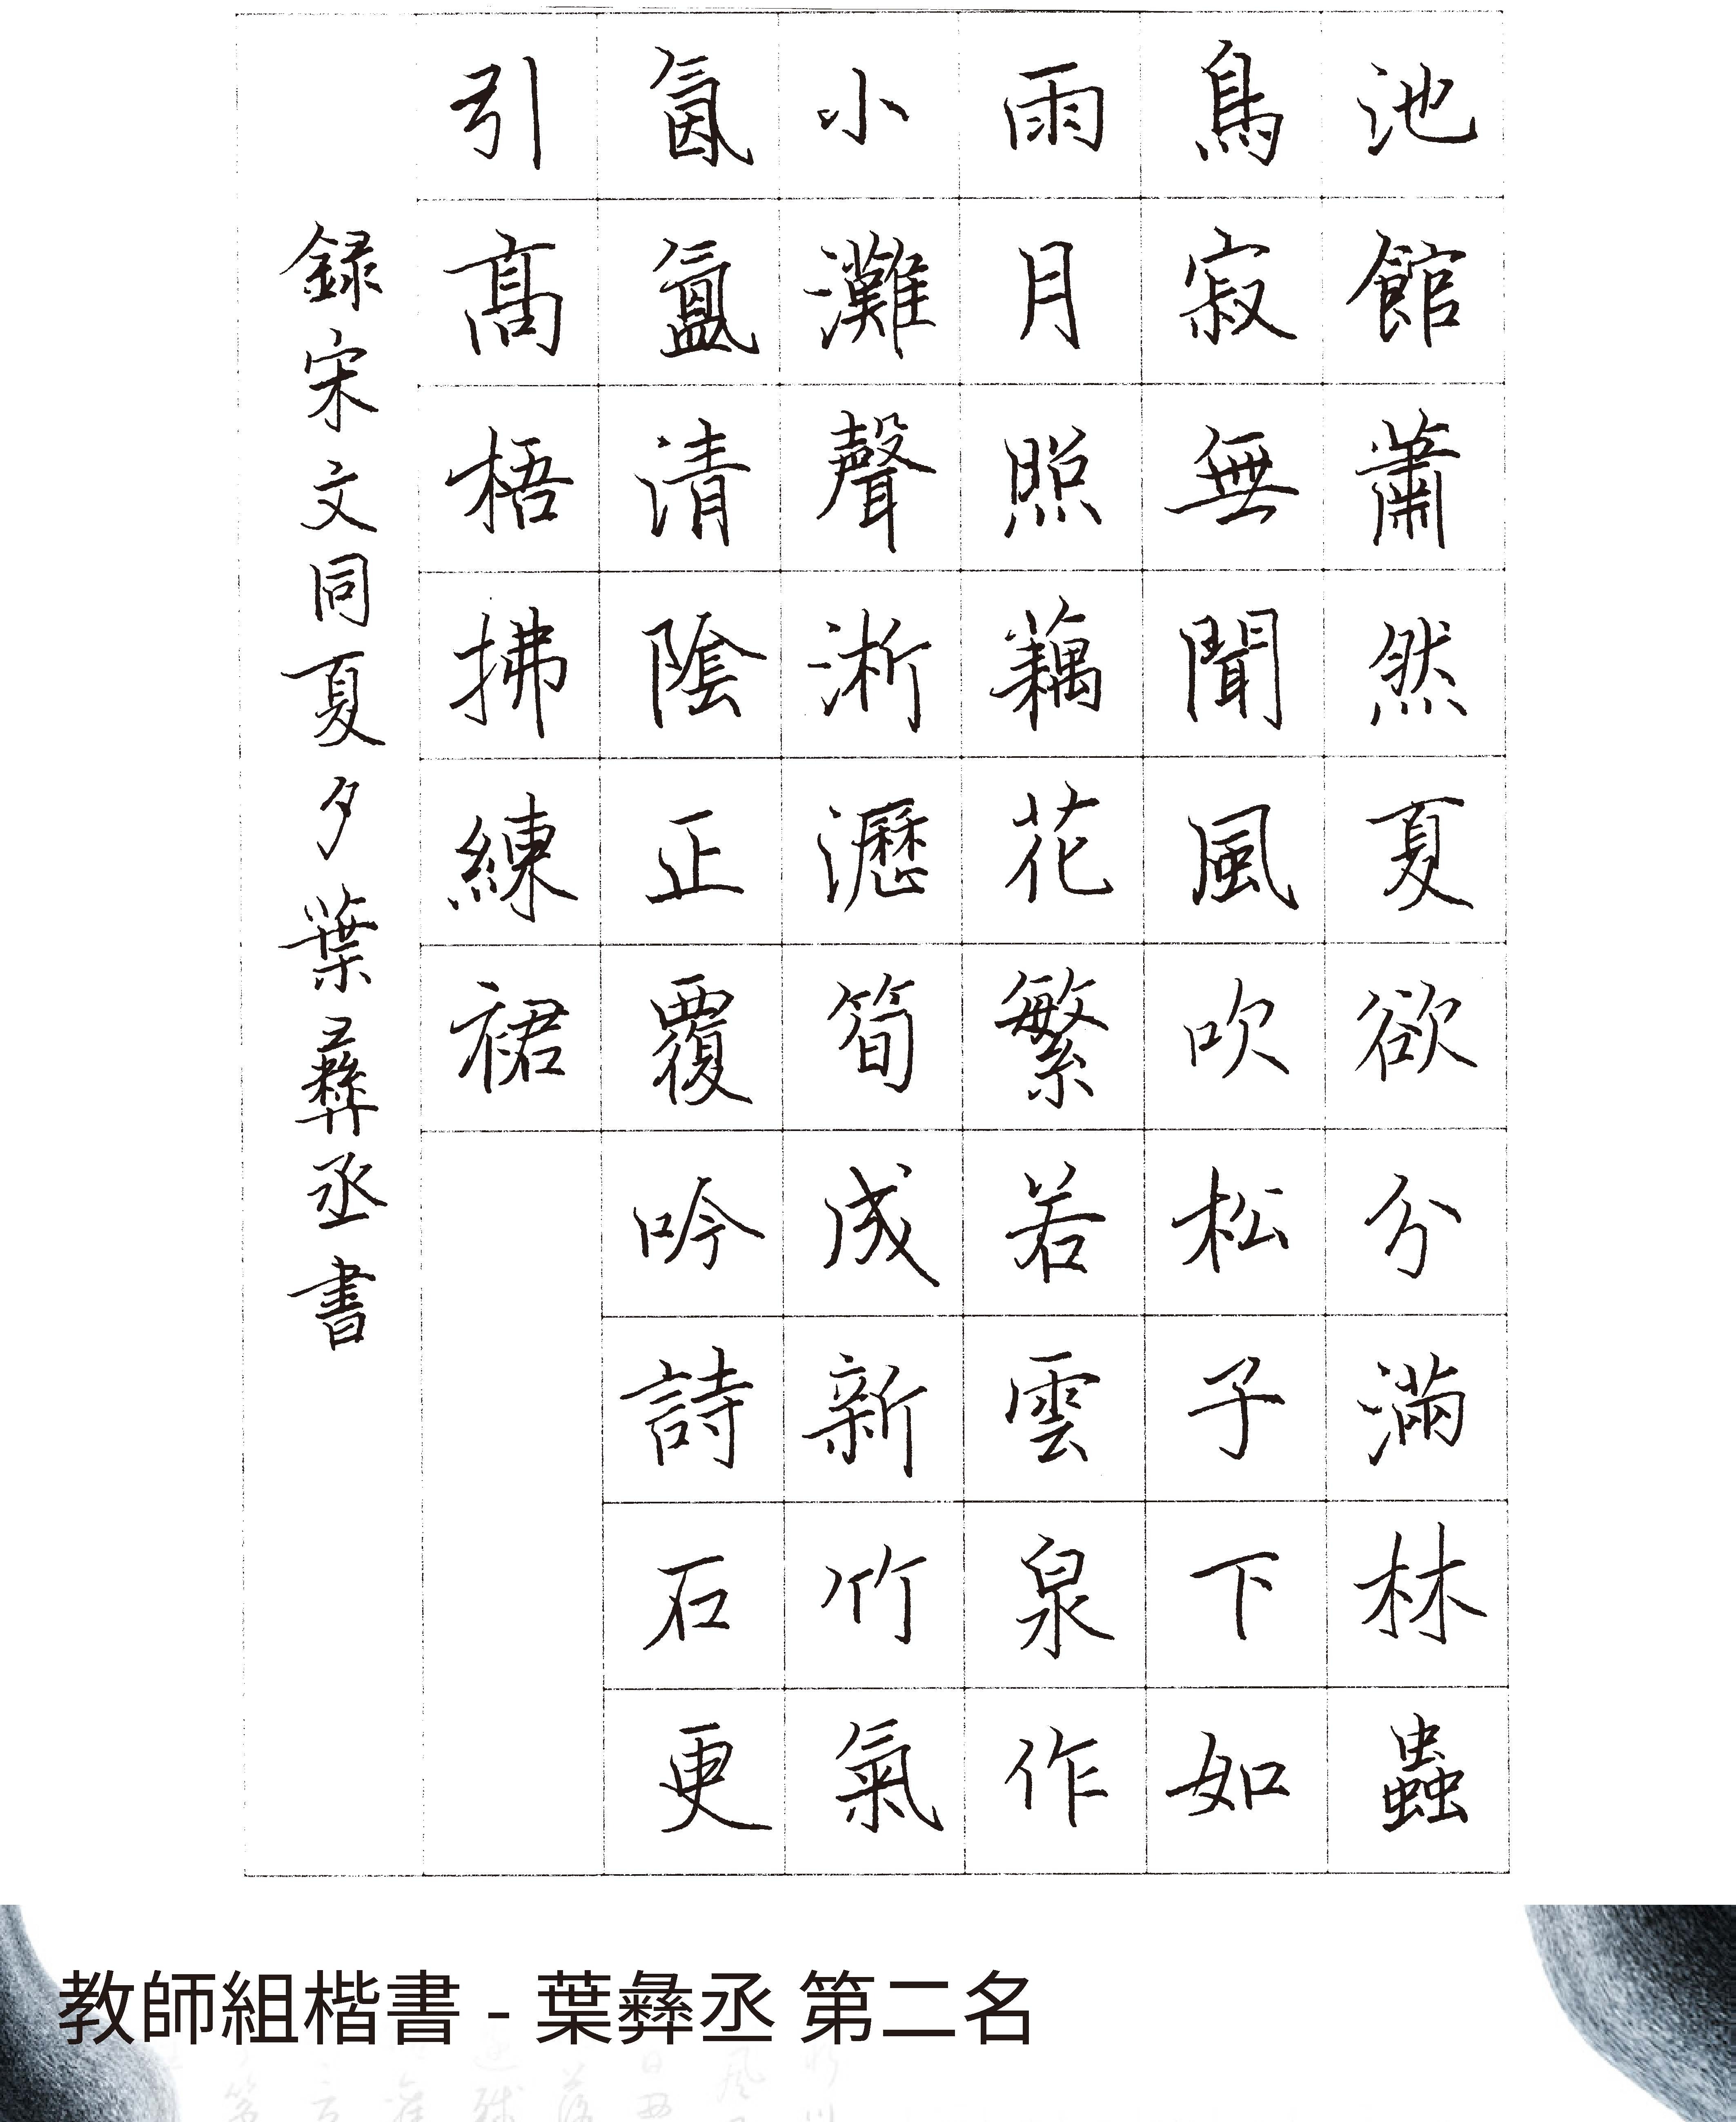 池館蕭然夏欲分滿林蟲
鳥寂無聞風吹松子下如
雨月照藕花繁若雲泉作
小灘聲淅瀝筍成新竹氣
氤氳清陰正覆吟詩石更
引高梧拂練裙
録宋文同夏夕葉彝丞書
教師組楷書 - 葉彝丞 第二名